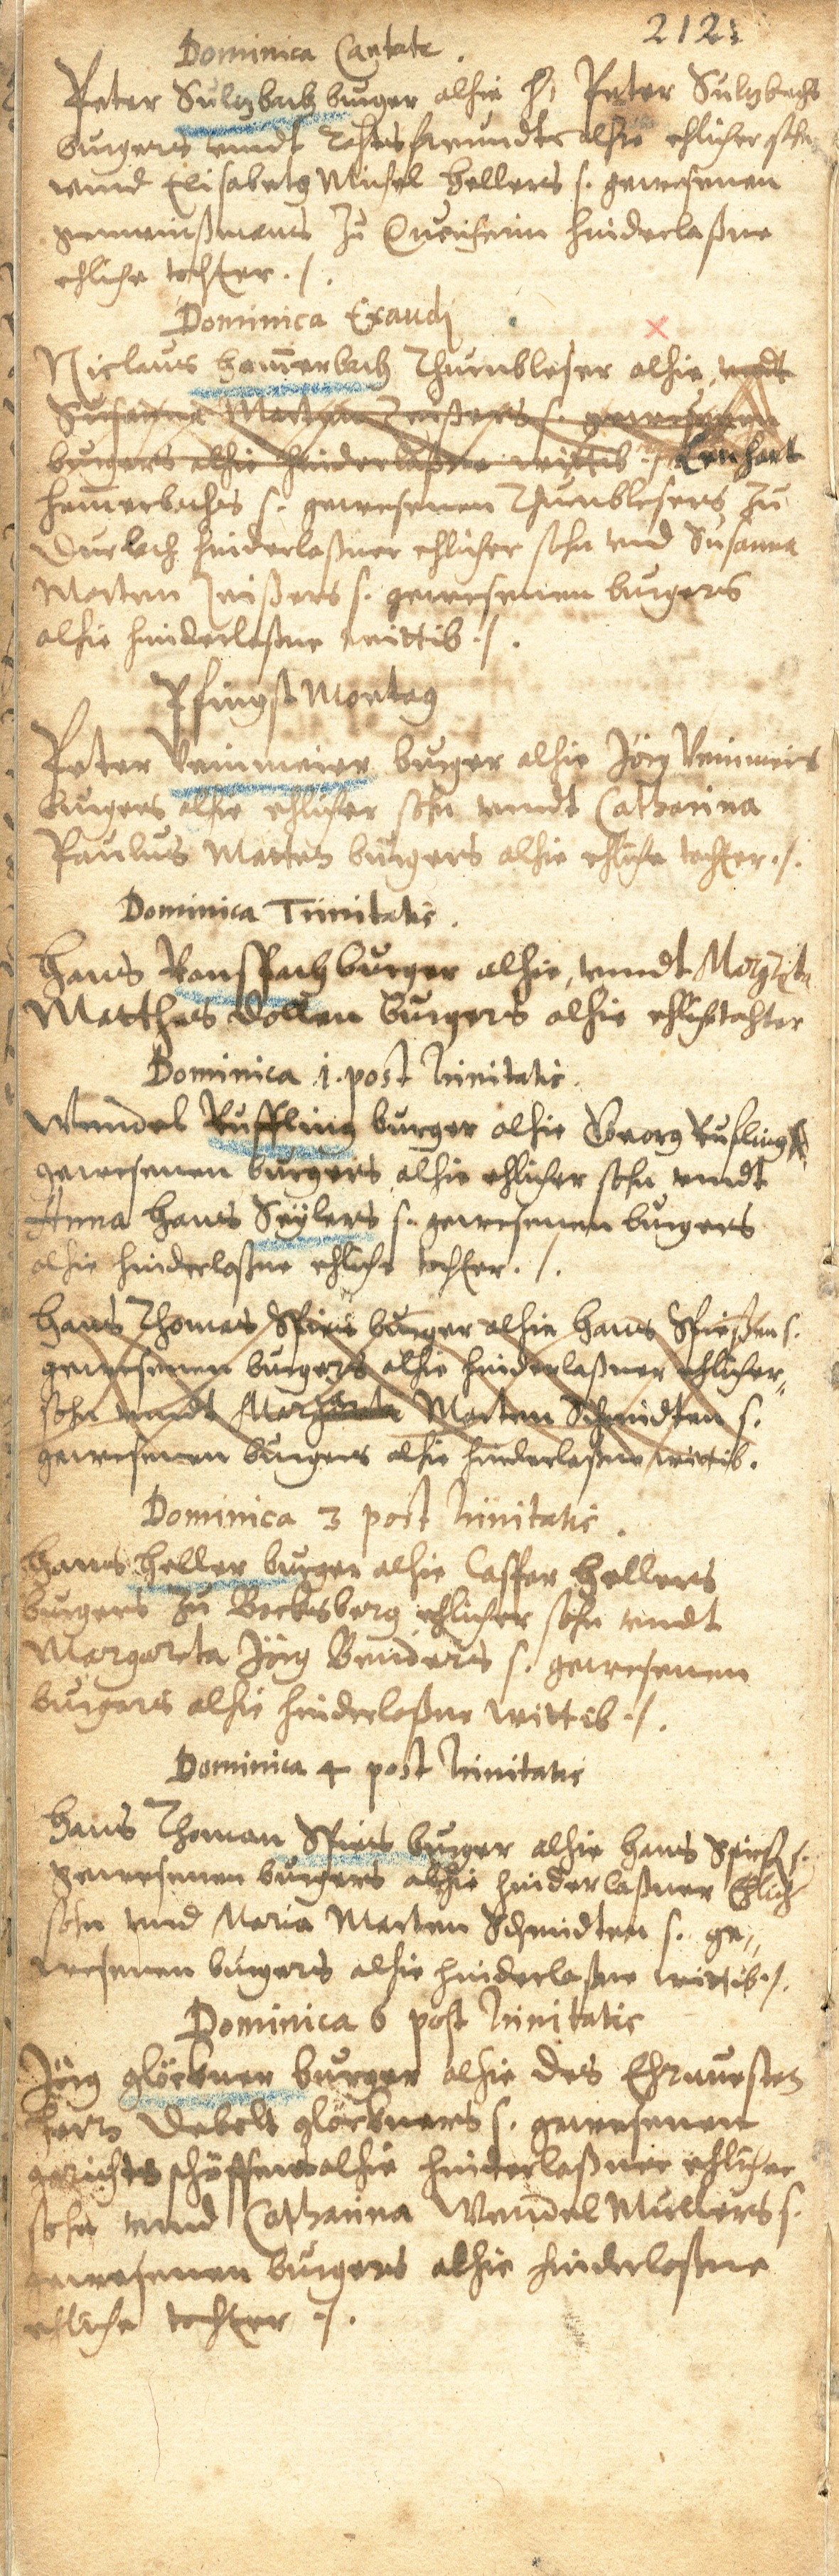 212
Dominica Cantate.
Peter Sultzbach burger alhie H. Peter Sultzbachs
burgers unndt Rahtsfreundts alhie ehlicher sohn
unnd Elisabetha Michel Hellers s. gewesenen
gemeinßmans zu hinderlaßne
ehliche tochter ./.
Dominica Exaudi
Niclaus Hammerbach Thurnbleser alhie, undt
Susanna Marten Zeißers s. gewesenen
burgers alhie hinderlaßne wittib ./. Lenhart
Hammerbachs s. gewesenen Thurnblesers zu
Durlach hinderlaßner ehlicher sohn und Susanna
Marten Zeißers s. gewesenen burgers
alhie hinderlaßne wittib ./.
Pfingst Montag
Peter Veinmeier burger alhie Jörg Veinmeiers
burgers alhie ehlicher sohn unndt Catharina
Paulus Matten burgers alhie ehliche tochter ./.
Dominica Trinitatis.
Hans Ranspach burger alhie, unndt Margreta
Matthes Dollen burgers alhie ehliche tochter
Dominica 1. post Trinitatis.
Wendel Ruffling burger alhie Georg Ruflings
gewesenen burgers alhie ehlicher sohn unndt
Anna Hans Seylers s. gewesenen burgers
alhie hinderlaßne ehliche tochter ./.
Hans Thomas Spies burger alhie Hans Spießen s.
gewesenen burgers alhie hinderlaßner ehlicher
sohn unndt Margareta Marten Schmidten s.
gewesenen burgers alhie hinderlaßne wittib.
Dominica 3 post Trinitatis.
Hans Heller burger alhie Casper Hellers
burgers zu Bocksberg ehlicher sohn undt
Margareta Jörg Benders s. gewesenen
burgers alhie hinderlaßne wittib ./.
Dominica 4 post Trinitatis
Hans Thoman Spies burger alhie Hans Spieß s.
gewesenen burgers alhie hinderlaßner Ehlich
sohn unnd Maria Marten Schmidten s. ge-
wesenen burgers alhie hinderlaßne wittib ./.
Dominica 6 post Trinitatis
Jörg Glöckner burger alhie des Ehrnvesten
Herrn Debolt Glöckners s. gewesenen
gerichts schöffens alhie hinterlaßner ehlicher
sohn unnd Catharina Wendel Müllers s.
gewesenen burgers alhie hinderlaßne
ehliche tochter ./.